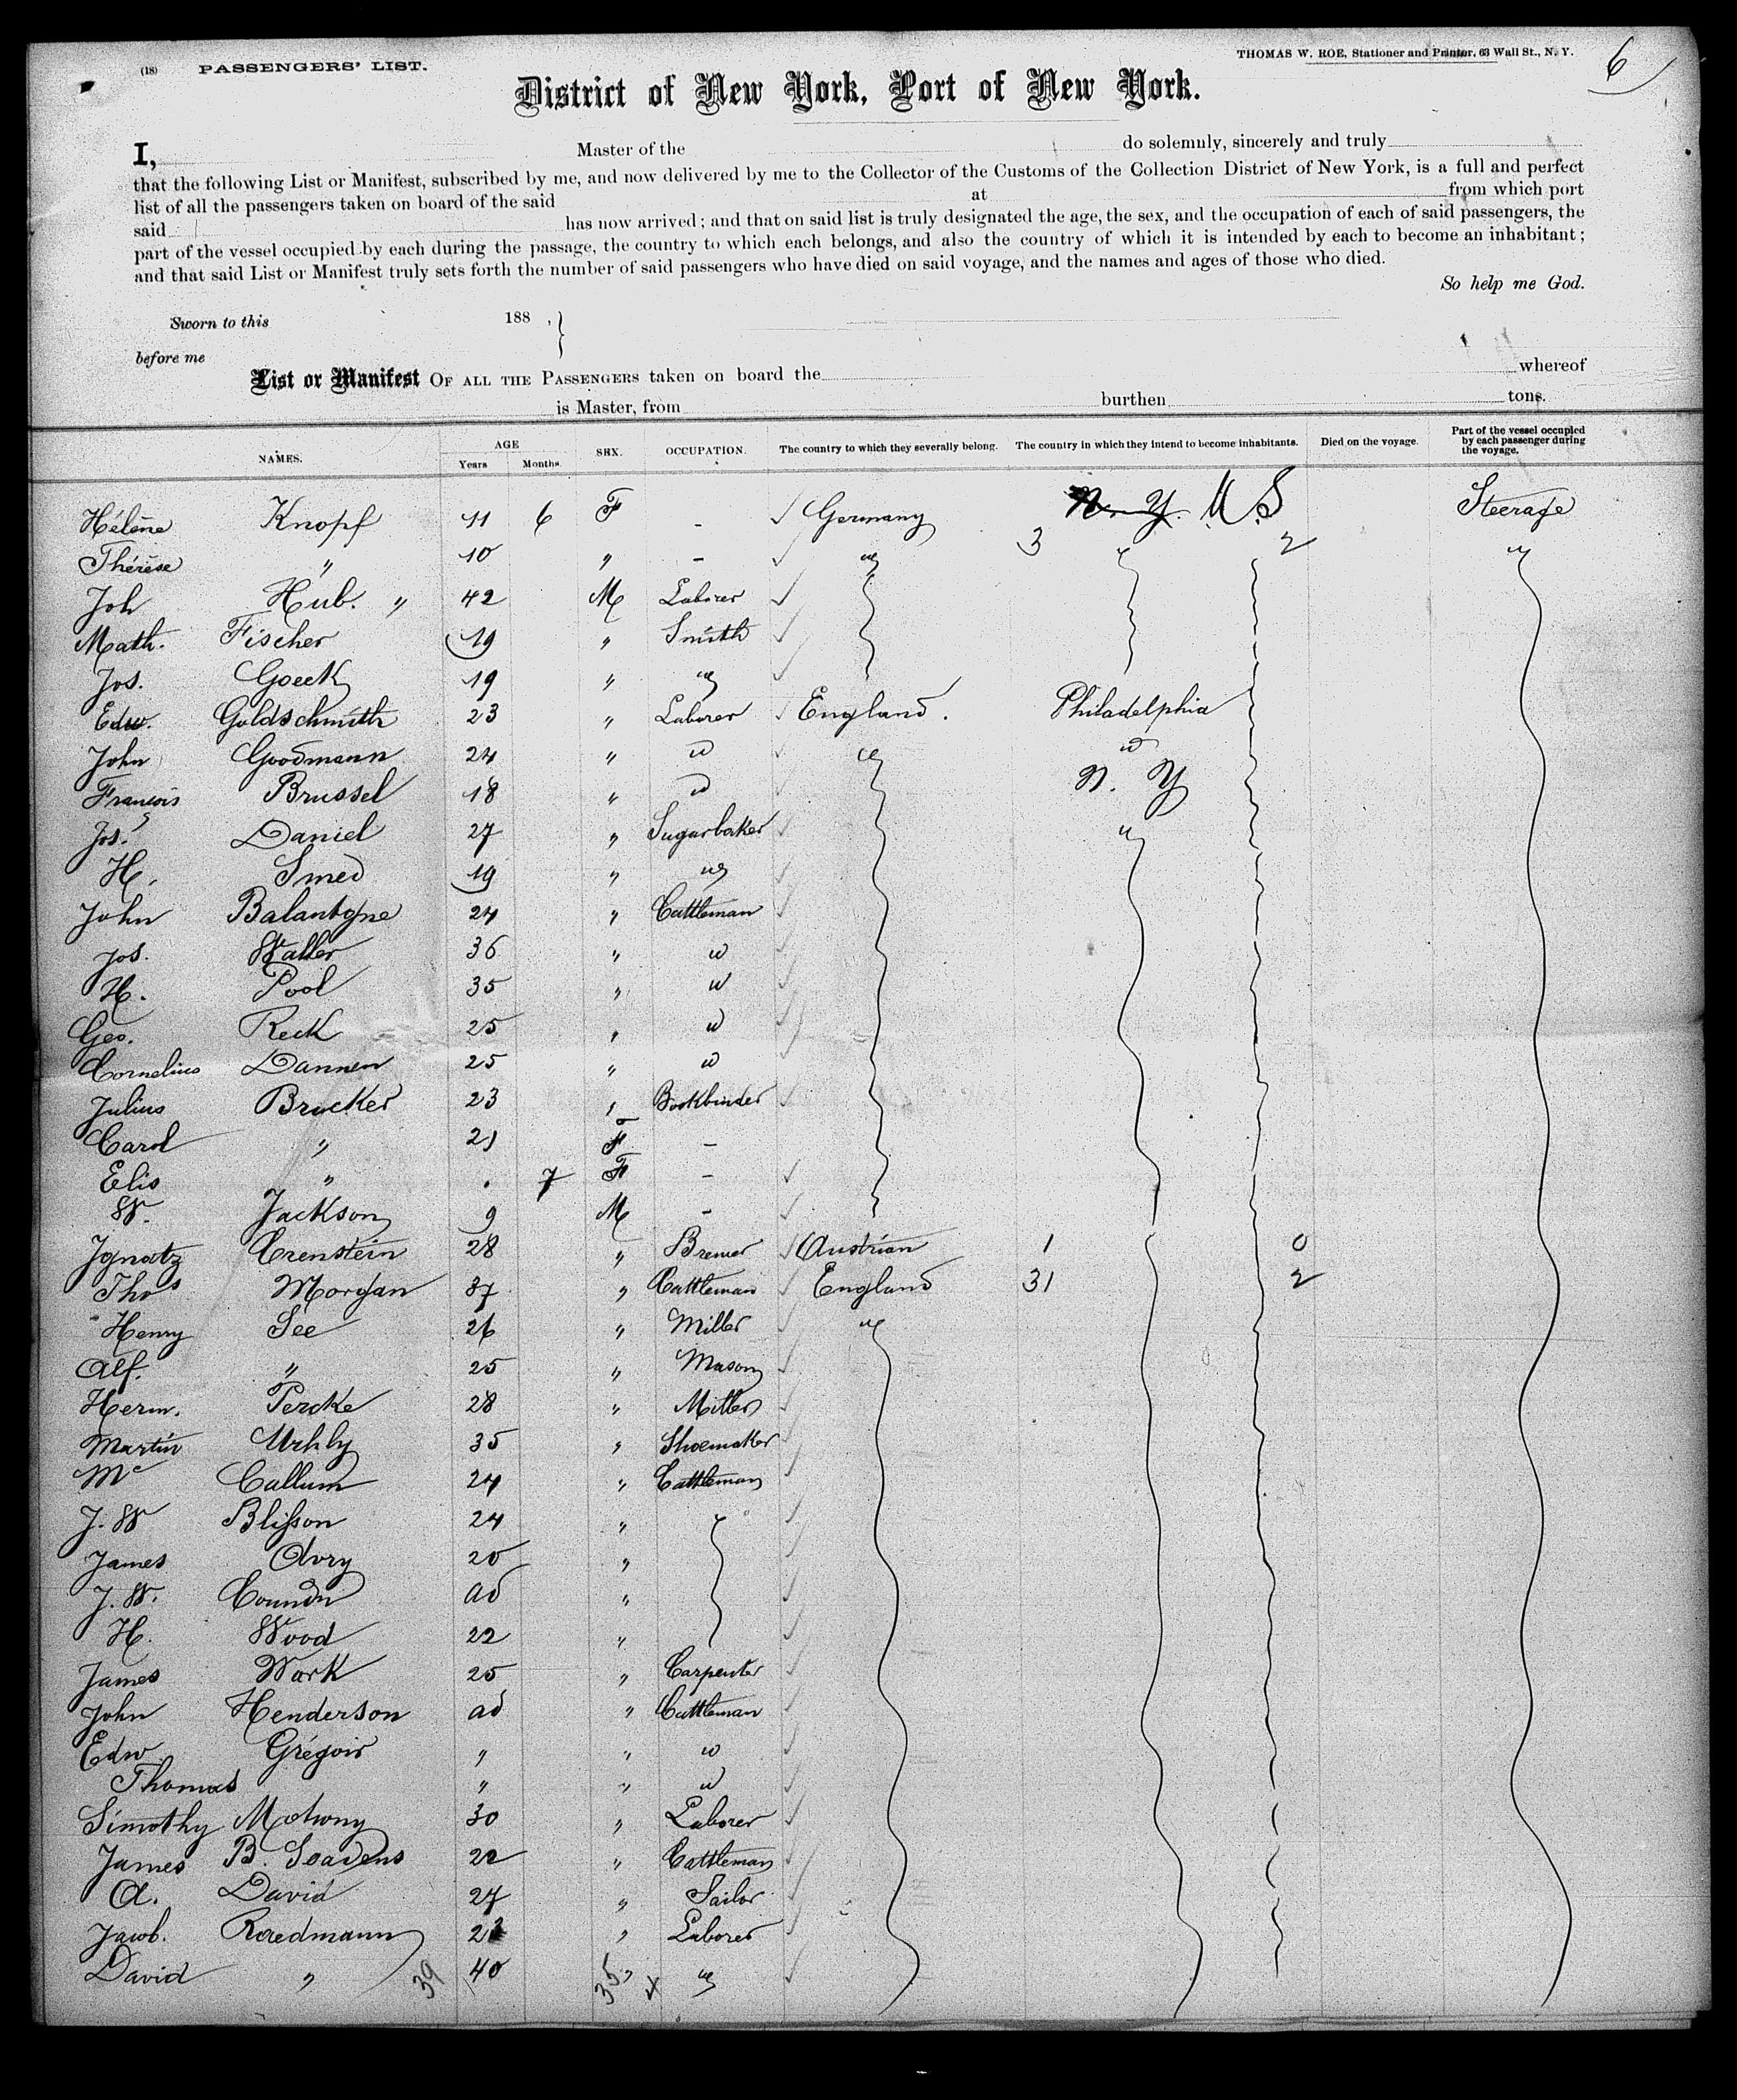 (18) PASSENGERS' LIST.
THOMAS W. ROE, Stationer and Printer, 63 Wall St., N. Y.
6
District of New York, Port of New York.
I, Master of the do solemnly, sincerely and truly
that the following List or Manifest, subscribed by me, and now delivered by me to the Collector of the Customs of the Collection District of New York, is a full and perfect
list of all the passengers taken on board of the said at from which port
said has now arrived; and that on said list is truly designated the age, the sex, and the occupation of each of said passengers, the
part of the vessel occupied by each during the passage, the country to which each belongs, and also the country of which it is intended by each to become an inhabitant;
and that said List or Manifest truly sets forth the number of said passengers who have died on said voyage, and the names and ages of those who died.
So help me God.
Sworn to this 188 ,
before me
List or Manifest OF ALL THE PASSENGERS taken on board the whereof
is Master, from burthen tons.
NAMES. AGE Years Months SEX. OCCUPATION. The country to which they severally belong. The country in which they intend to become inhabitants. Died on the voyage. Part of the vessel occupied by each passenger during the voyage.
Hélène Knopf 11 6 F - Germany N. Y. U.S Steerage
Thérèse " 10 " - " 3 2 "
Joh Hub. " 42 M Laborer
Math. Fischer 19 " Smith
Jos. Goeck 19 " "
Edw. Goldschmith 23 " Laborer England. Philadelphia
John Goodmann 24 " " " "
François Brussel 18 " " N. Y
Jos. Daniel 27 " Sugarbaker "
H. Smed 19 " "
John Balantyne 24 " Cattleman
Jos. Walter 36 " "
H. Pool 35 " "
Geo. Reck 25 " "
Cornelius Dannen 25 " "
Julius Brucker 23 " Bookbinder
Carol " 21 F -
Elis " . 7 F -
W. Jackson 9 M -
Ignatz Orenstein 28 " Brewer Austrian 1 0
Thos Morgan 37 " Cattleman England 31 2
Henry See 26 " Miller "
Alf. " 25 " Mason
Herm. Percke 28 " Miller
Martin Urhly 35 " Shoemaker
Mc Callum 24 " Cattleman
J. W Blisson 24 "
James Avry 25 "
J. W. ad "
H. Wood 22 "
James Work 25 " Carpenter
John Henderson ad " Cattleman
Edw Grégoir " " "
Thomas " " "
Timothy Mahony 30 " Laborer
James B. 22 " Cattleman
A. David 27 " Sailor
Jacob. Roedmann 23 " Laborer
David " 39 40 35 " 4 "